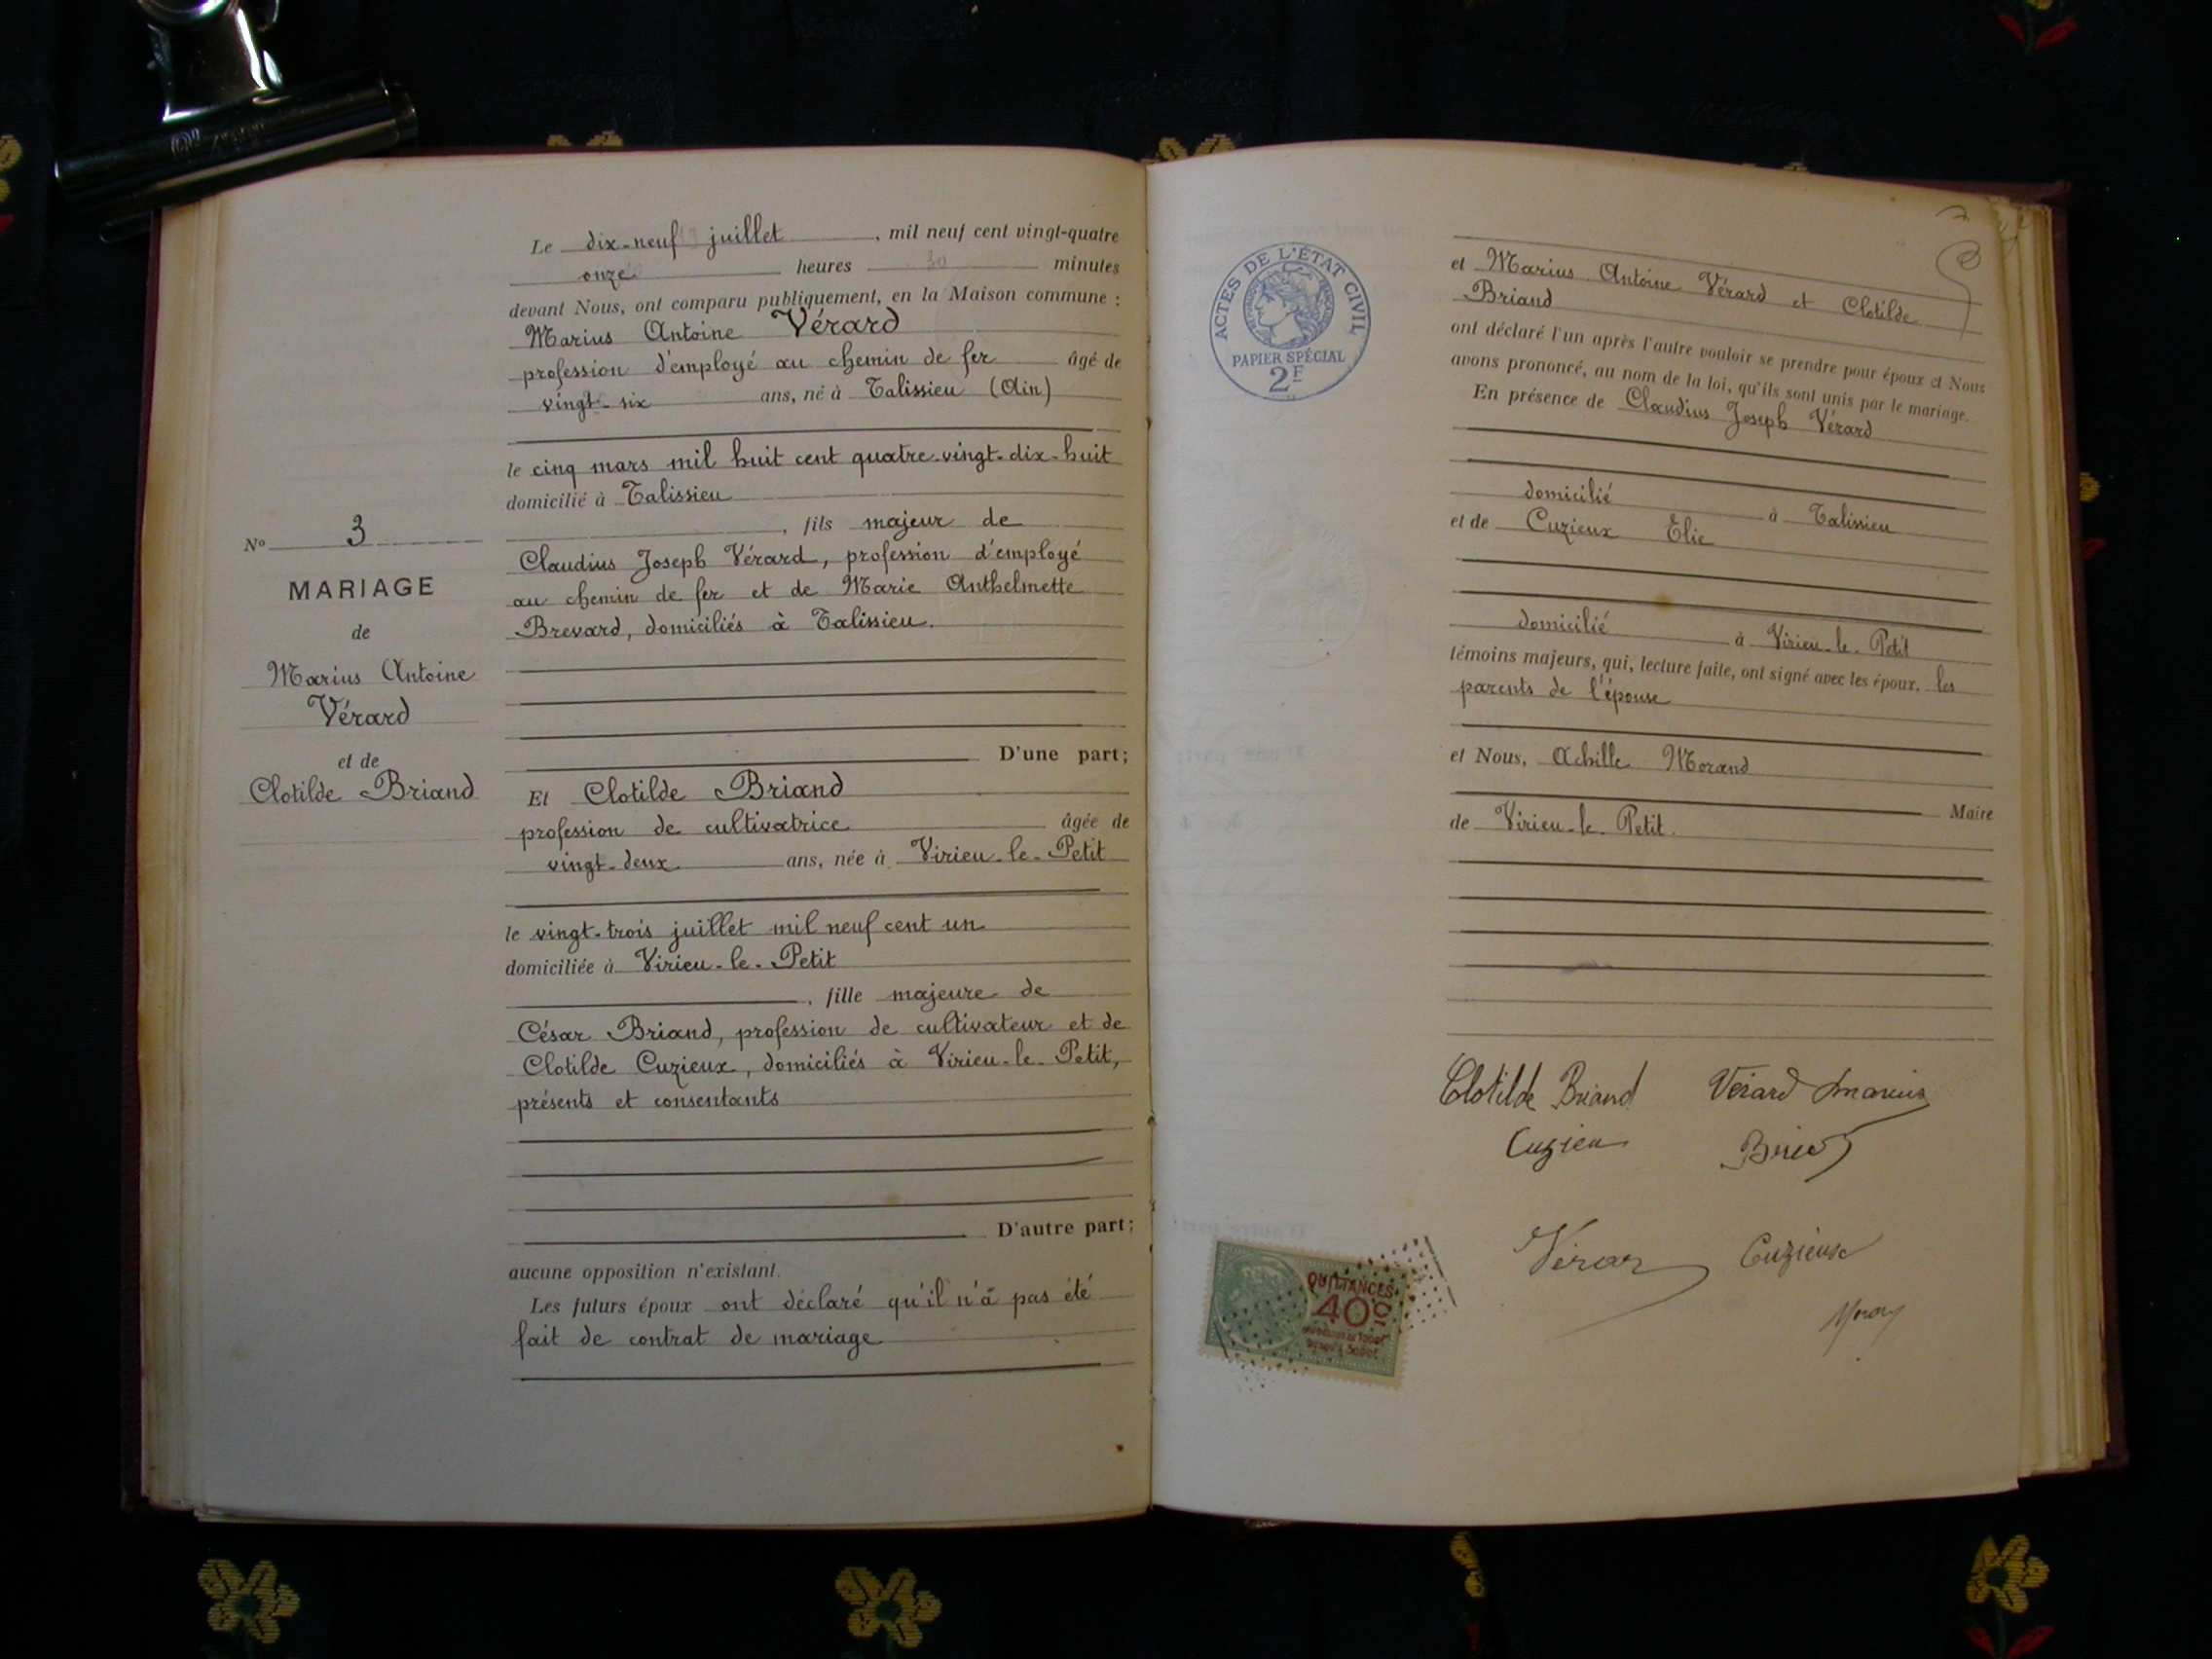 Le dix-neuf juillet, mil neuf cent vingt-quatre
onze heures 30 minutes
devant Nous, ont comparu publiquement, en la Maison commune :
Marius Antoine Vérard
profession d'employé au chemin de fer âgé de
vingt-six ans, né à Talissieu (Ain)
le cinq mars mil huit cent quatre-vingt-dix-huit
domicilié à Talissieu
, fils majeur de
Claudius Joseph Vérard, profession d'employé
au chemin de fer et de Marie Anthelmette
Brevard, domiciliés à Talissieu.
D'une part;
Nº 3
MARIAGE
de
Marius Antoine
Vérard
et de
Clotilde Briand
Et Clotilde Briand
profession de cultivatrice âgée de
vingt-deux ans, née à Virieu-le-Petit
le vingt-trois juillet mil neuf cent un
domiciliée à Virieu-le-Petit
, fille majeure de
César Briand, profession de cultivateur et de
Clotilde Cuzieux, domiciliés à Virieu-le-Petit,
présents et consentants
D'autre part;
aucune opposition n'existant.
Les futurs époux ont déclaré qu'il n'a pas été
fait de contrat de mariage
ACTES DE L'ÉTAT CIVIL
PAPIER SPÉCIAL
2F
et Marius Antoine Vérard et Clotilde
Briand
ont déclaré l'un après l'autre vouloir se prendre pour époux et Nous
avons prononcé, au nom de la loi, qu'ils sont unis par le mariage.
En présence de Claudius Joseph Vérard
domicilié à Talissieu
et de Cuzieux Elie
domicilié à Virieu-le-Petit
témoins majeurs, qui, lecture faite, ont signé avec les époux, les
parents de l'épouse
et Nous, Achille Morand
Maire
de Virieu-le-Petit.
Clotilde Briand Vérard Marius
Cuzieu
Cuzieux
QUITTANCES
40c